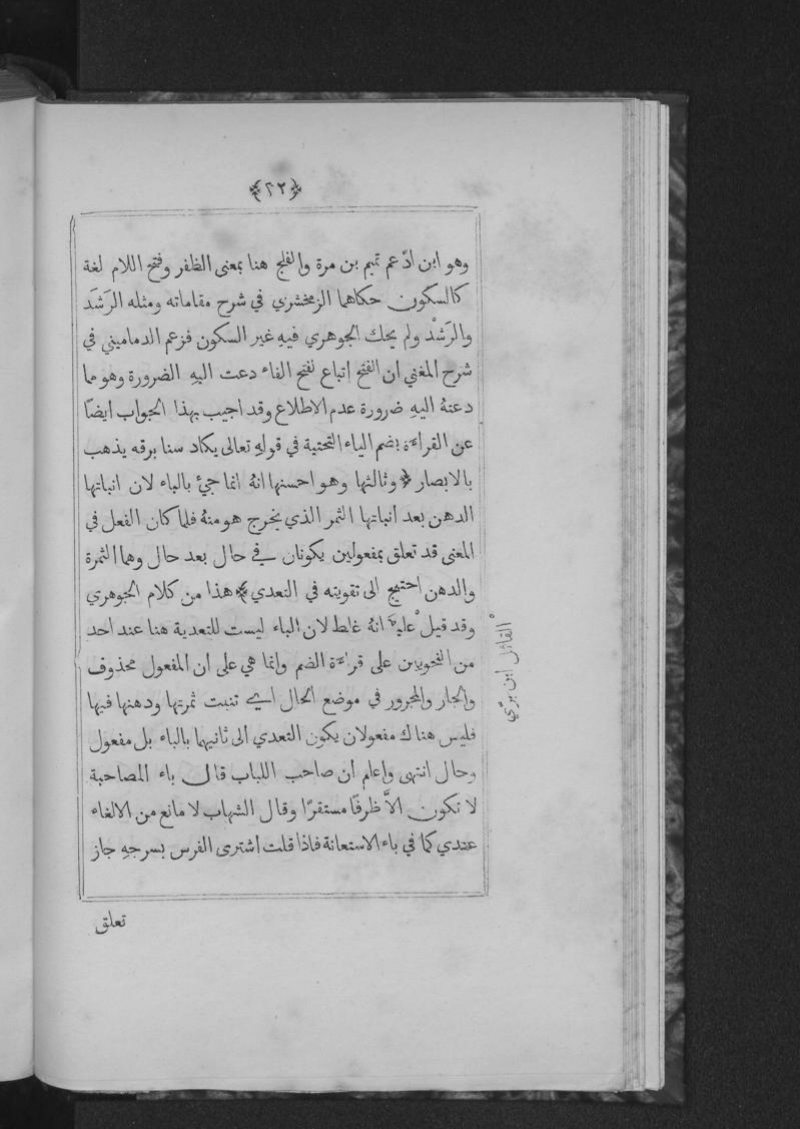 ﴿٢٢﴾
وهو ابن ادّعم تميم بن مرة والفلج هنا بمعنى الظفر وفتح اللام لغة
كالسكون حكاهما الزمخشري في شرح مقاماته ومثله الرَشَد
والرَشْد ولم يحك الجوهري فيهِ غير السكون فزعم الدماميني في
شرح المغني ان الفتح إتباع لفتح الفاء دعت اليهِ الضرورة وهو مما
دعتهُ اليهِ ضرورة عدم الاطلاع وقد اجيب بهذا الجواب ايضًا
عن القراءة بضم الياء التحتية في قولهِ تعالى يكاد سنا برقه يذهب
بالابصار ﴿ وثالثها وهو احسنها انهُ انما جيء بالباء لان انباتها
الدهن بعد انباتها الثمر الذي يخرج هو منهُ فلما كان الفعل في
المعنى قد تعلق بمفعولين يكونان في حال بعد حال وهما الثمرة
والدهن احتيج الى تقويته في التعدي ﴾ هذا من كلام الجوهري
وقد قيل ْعليهِ انهُ غلط لان الباء ليست للتعدية هنا عند احد
من النحويين على قراءة الضم وانما هي على ان المفعول محذوف
والجار والمجرور في موضع الحال اي تنبت ثمرتها ودهنها فيها
فليس هناك مفعولان يكون التعدي الى ثانيهما بالباء بل مفعول
وحال انتهى واعلم ان صاحب اللباب قال باء المصاحبة
لا تكون الاَّ ظرفًا مستقرًا وقال الشهاب لا مانع من الالغاء
عندي كما في باء الاستعانة فاذا قلت اشترى الفرس بسرجهِ جاز
تعلق
ْ القائل ابن برّي